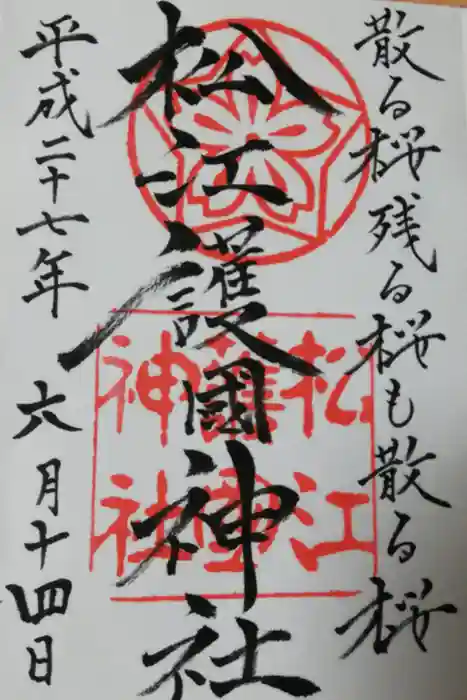 散る桜残る桜も散る桜
松江護國神社
平成二十七年 六月十四日
松江
護國
神社